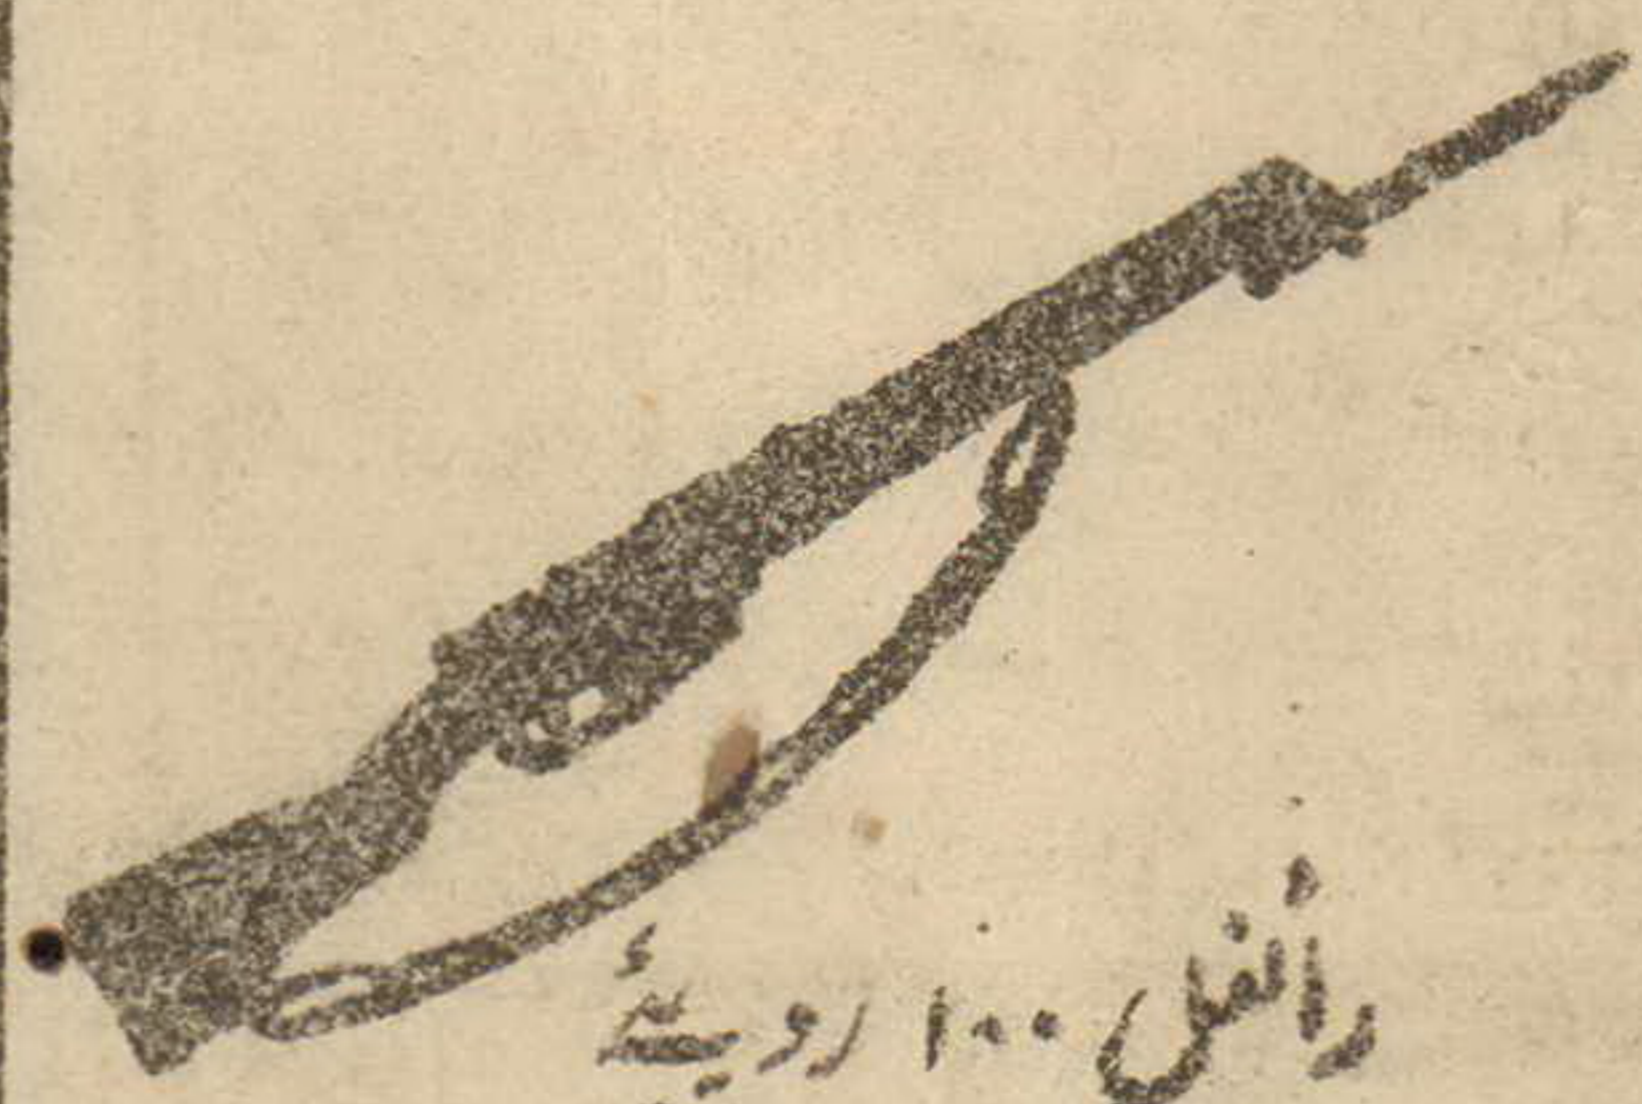 رائفل ۱۰۰ روپیئے